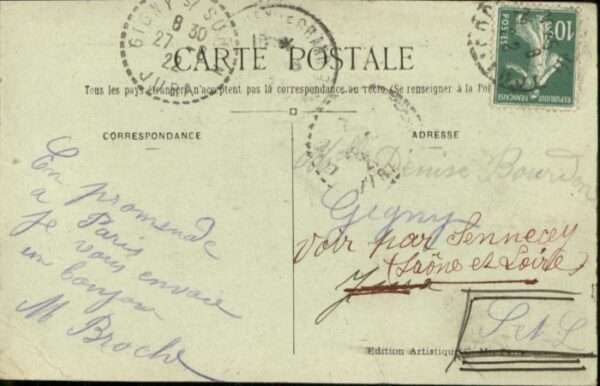 GIGNY S/ SUR
8 30
27
22
JURA
10c
POSTES
RÉPUBLIQUE FRANÇAISE
CARTE POSTALE
Tous les pays étrangers n'acceptent pas la correspondance au recto (Se renseigner à la
CORRESPONDANCE
ADRESSE
En promenade
a Paris
je vous envoie
un bonjour
M Broche
Mlle Denise Bourdon
Gigny
Voir par Sennecey
(Saône et Loire)
Jura
S et L
Edition Artistique